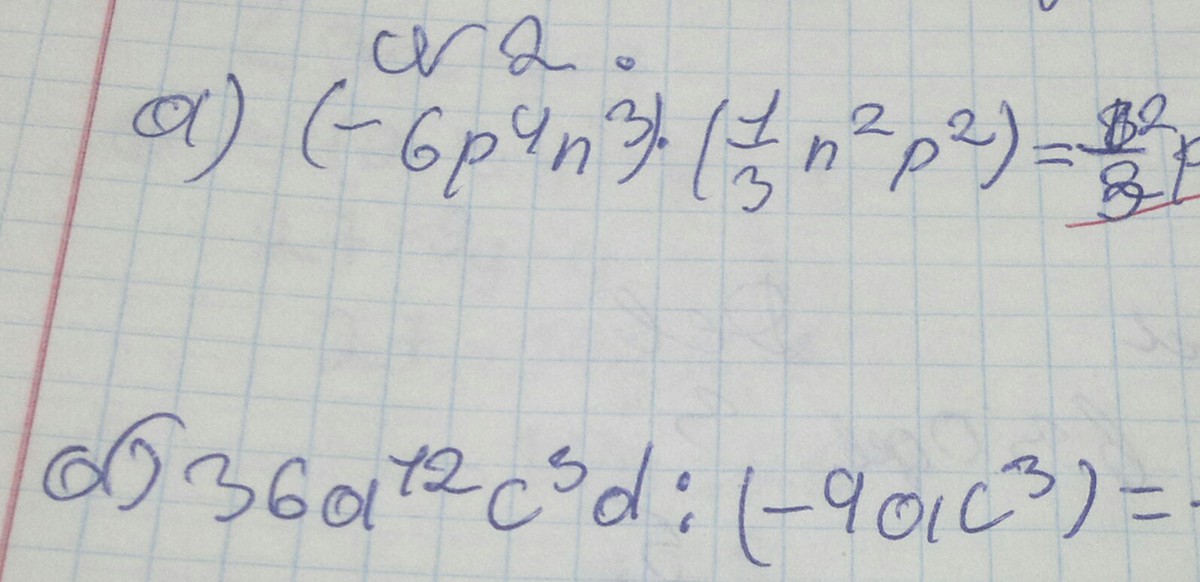 №2.
а) (-6p⁴n³)·(1/3 n²p²)=
б) 36a¹²c³d : (-9ac³) =